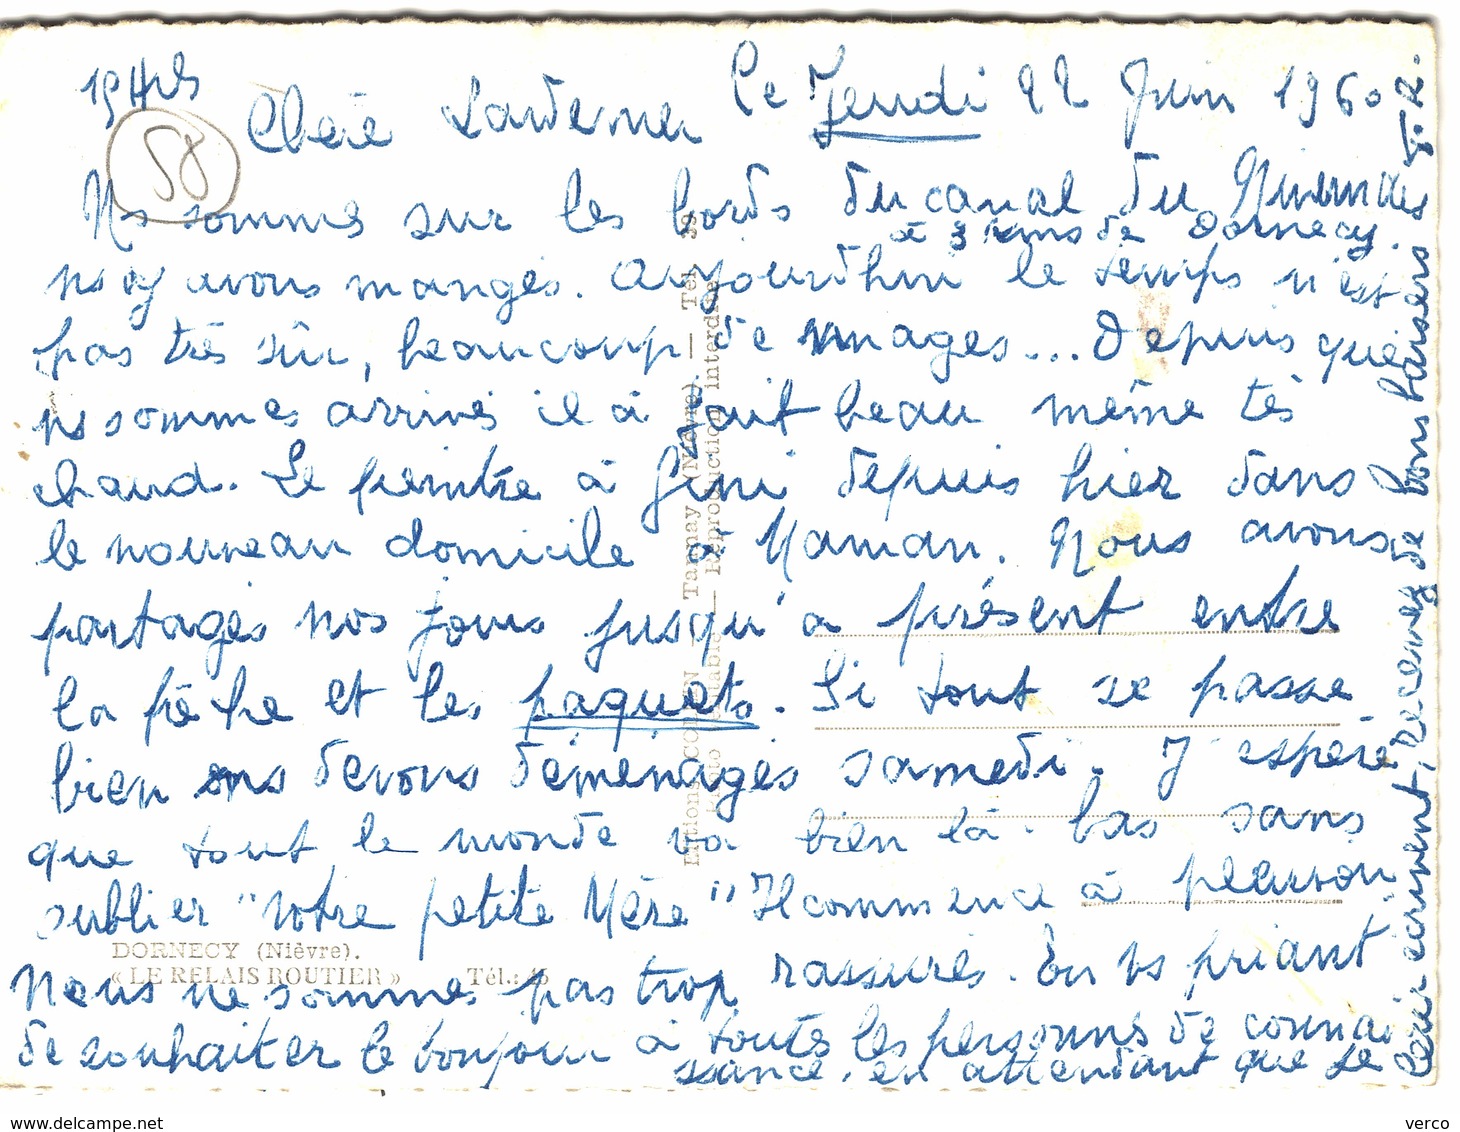 19Hrs
Le Jeudi 22 Juin 1960
58
Chère
Ns sommes sur les bords du canal du Nivernais
à 3 kms de Dornecy.
ns y avons mangés. Aujourdhui le temps n'est
pas très sûr, beaucoup de nuages... Depuis que
ns sommes arrivés il à fait beau même tès
chaud. Le peintre à fini depuis hier dans
le nouveau domicile à Maman. Nous avons
partagés nos jours jusqu'à présent entre
la pêche et les paquets. Si tout se passe
bien ns devons déménagés samedi. J'espère
que tout le monde va bien là-bas sans
oublier "Notre petite Mère" Il commence à pleuvoir
Nous ne sommes pas trop rassurés. En vs priant
de souhaiter le bonjour à toutes les personnes de connai
ssance. en attendant que de
vous écrivent, recevez de bons baisers
DORNECY (Nièvre).
« LE RELAIS ROUTIER » Tél.: 45
Editions COMBIER Tannay (Nièvre). — Tél.
Photo véritable — Reproduction interdite
www.delcampe.net
verco